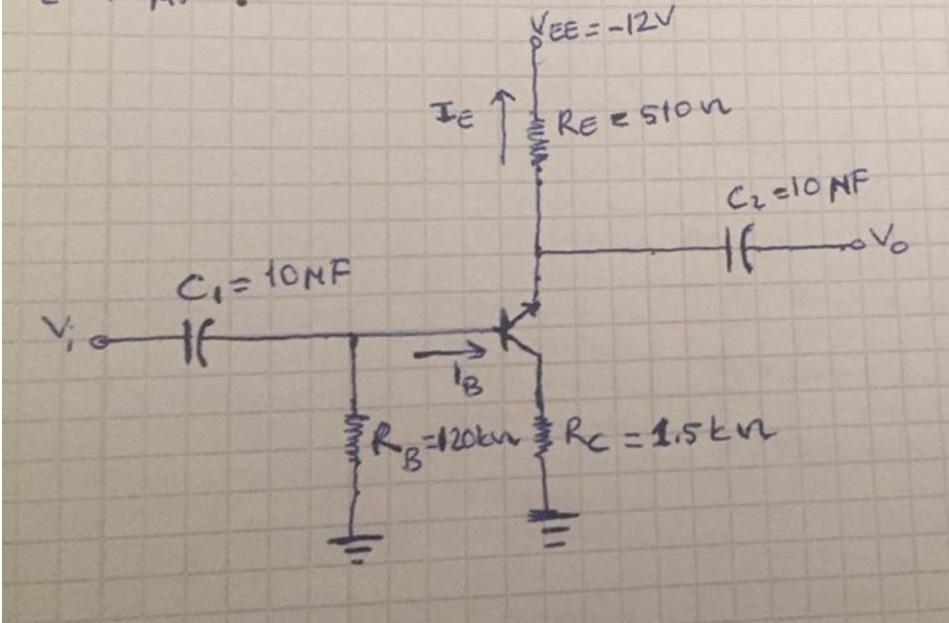 VEE = -12V
IE
RE = 510Ω
C2 = 10µF
Vo
C1 = 10µF
Vi
IB
RB = 120kΩ
RC = 1.5kΩ